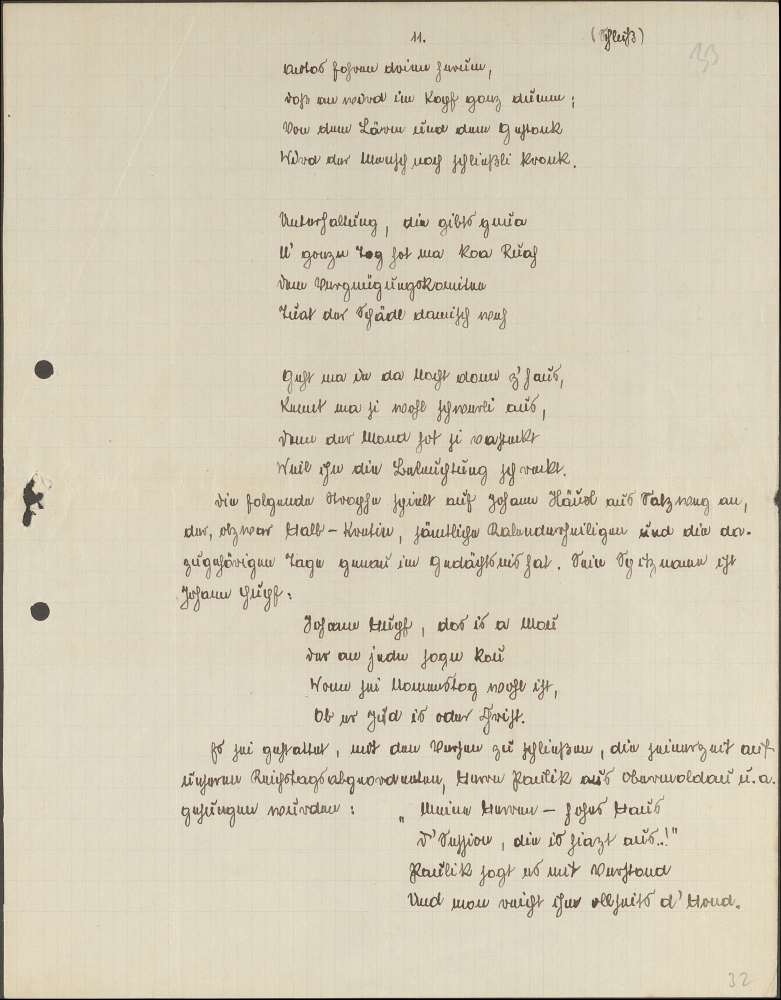 11. (Schluß)
33
Autos fahren drinn herum,
Daß an wird im Kopf ganz dumm;
Von dem Lärm und dem Gestank
Wird der Mensch noch schließli krank.
Unterhaltung, die gibts gnua
U' ganzn Tog hot ma koa Ruah
Dem Vergnügungskomitee
Tuat der Schädl damisch weh
Geht ma in da Nacht dann z'haus,
Kennt ma si wohl schwerli aus,
Denn der Mond hot si vasteckt
Weil ihn die Beleuchtung schreckt.
Die folgende Strophe spielt auf Johann Häusl aus Salzweg an,
der, obzwar Halb-Kretin, sämtliche Kalenderheiligen und die da-
zugehörigen Tage genau im Gedächtnis hat. Sein Spitzname ist
Johann Hupf:
Johann Hupf, das is a Mau
Der an jedn sogn kau
Wann sei Namenstag wohl ist,
Ob er Jud is oder Christ.
Es sei gestattet, mit den Versen zu schließen, die seinerzeit auf
unseren Reichstagsabgeordneten, Herrn Paulik aus Obermoldau u.a.
gesungen wurden: "Meine Herren – hohes Haus
D'Session, die is hiazt aus..!"
Paulik sagt es mit Verstand
Und man reicht ihm allseits d'Hand.
32